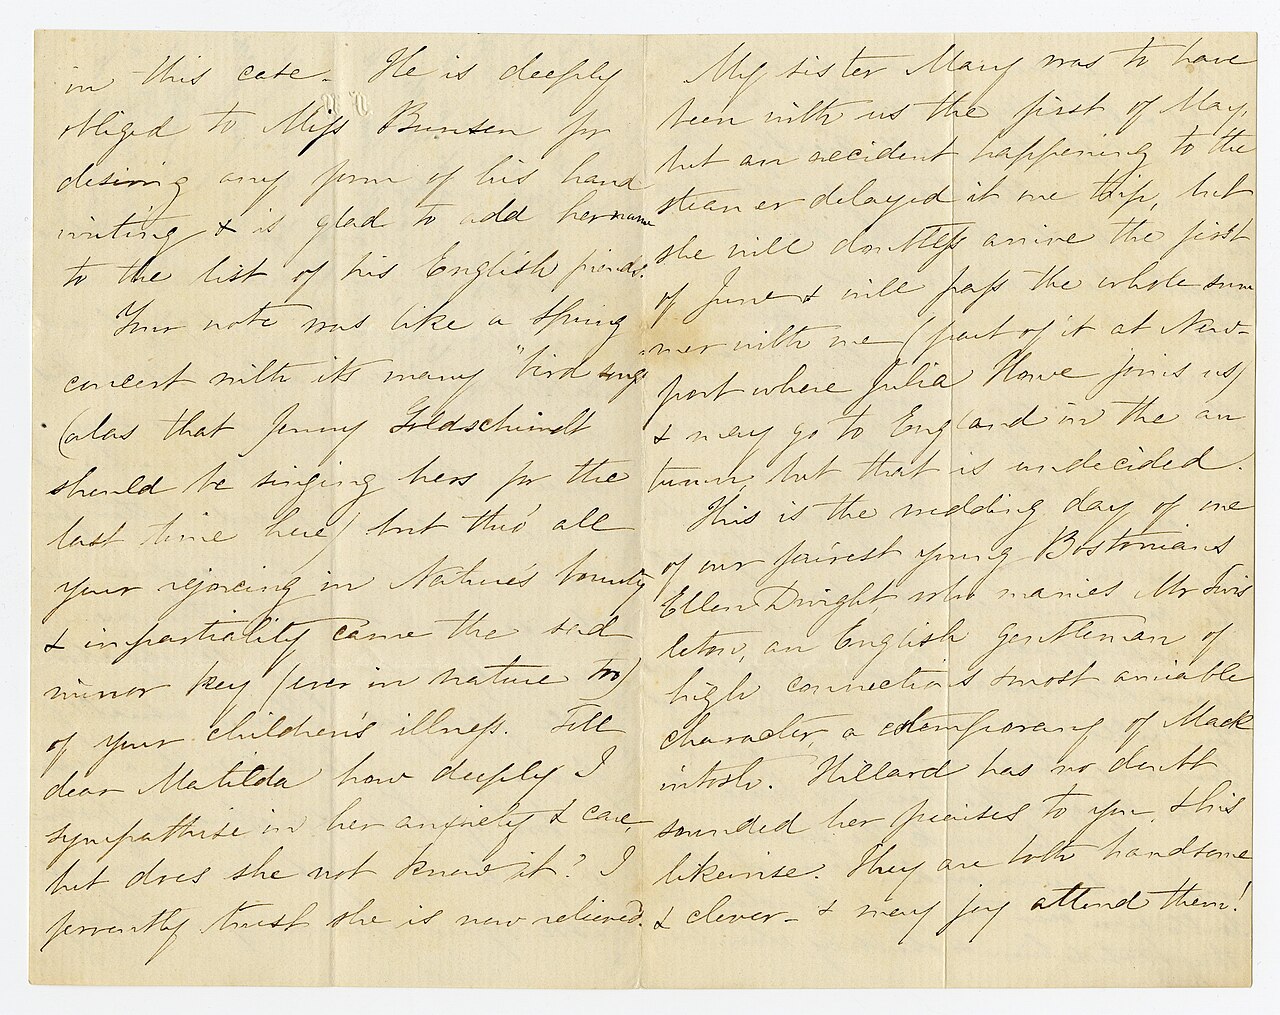 in this case - He is deeply
obliged to Miss Bunsen for
desiring any form of his hand
writing & is glad to add her name
to the list of his English friends.
Your note was like a Spring
concert with its many "bird songs
(alas that Jenny Goldschmidt
should be singing hers for the
last time here) but thro' all
your rejoicing in Nature's bounty
& impartiality came the sad
minor key (ever in nature too)
of your children's illness. Tell
dear Matilda how deeply I
sympathise in her anxiety & care,
but does she not know it? I
fervently trust she is now relieved.
My sister Mary was to have
been with us the first of May,
but an accident happening to the
steamer delayed it one trip, but
she will doubtless arrive the first
of June & will pass the whole sum
mer with me (part of it at New-
port where Julia Howe joins us)
& may go to England in the au
tumn, but that is undecided.
This is the wedding day of one
of our fairest young Bostonians
Ellen Dwight, who marries Mr Twis
leton, an English gentleman of
high connections & most amiable
character, a cotemporary of Mack
intosh. Hillard has no doubt
sounded her praises to you, & his
likewise. They are both handsome
& clever - & may joy attend them!